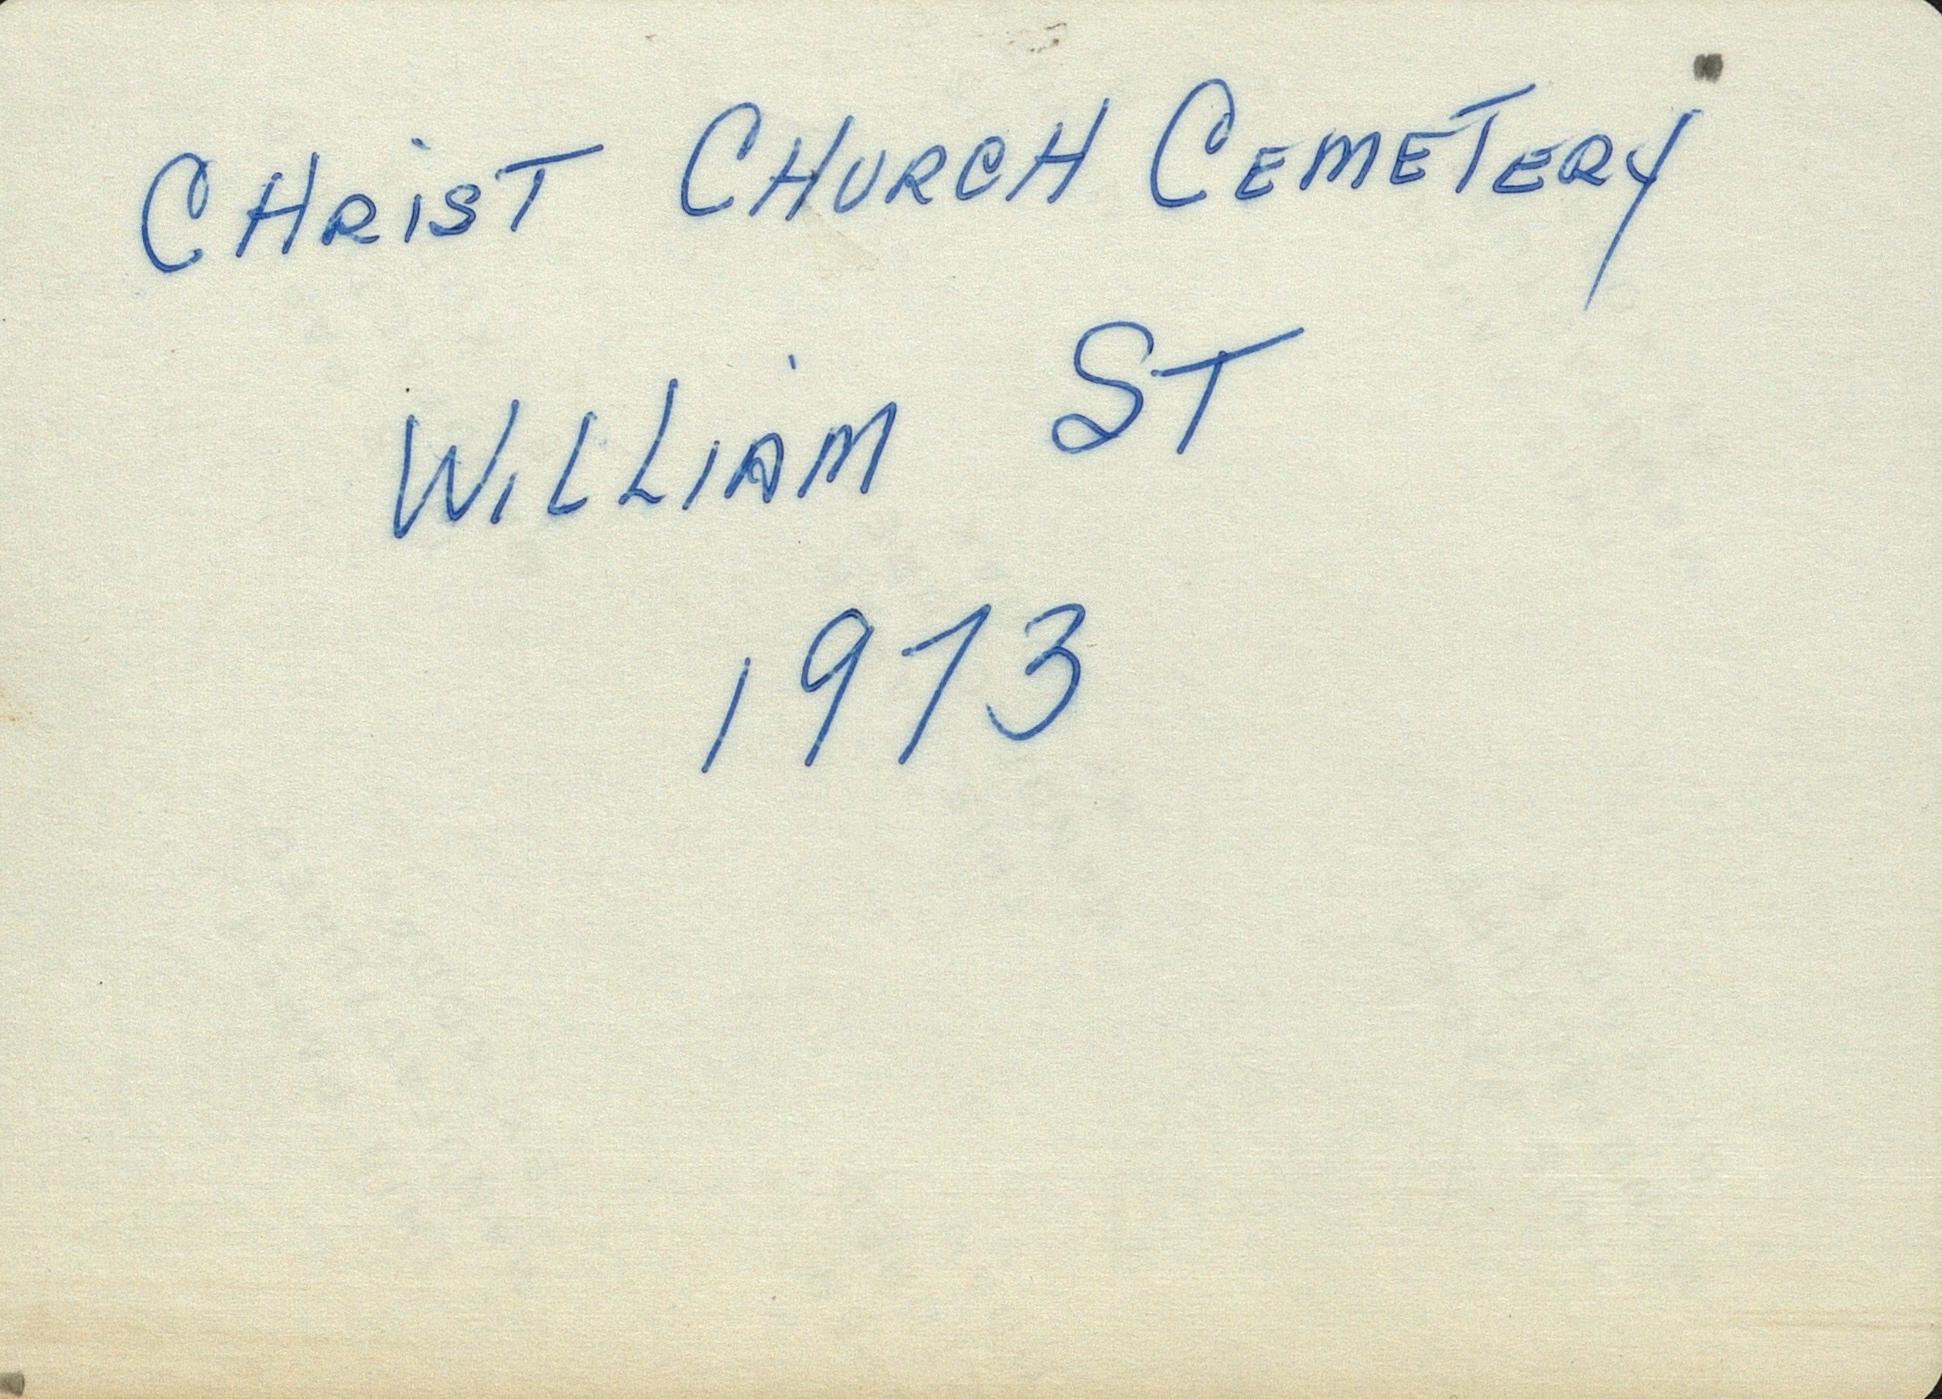 CHRiST CHURCH CEMETERY
WILLIAM ST
1973